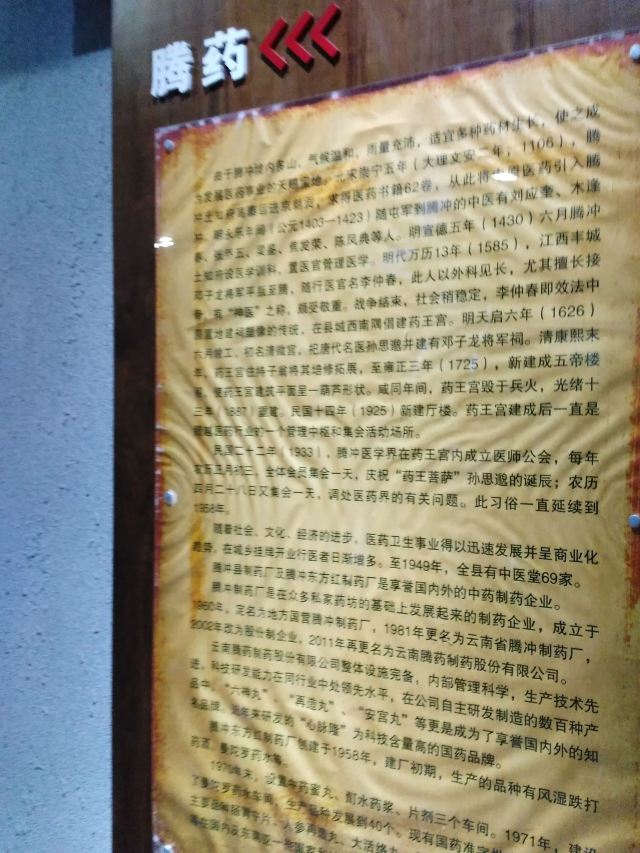 腾药
由于腾冲境内多山，气候温和，雨量充沛，适宜多种药材生长，使之成
为发展医药事业的天赐宝地。北宋崇宁五年（大理文安二年，1106），腾
求得医药书籍62卷，从此将中原医药引入腾
冲。明永乐年间（公元1403—1423）随屯军到腾冲的中医有刘应奎、木逢
春、张齐玉、梁鉴、焦发荣、陈凤典等人。明宣德五年（1430）六月腾冲
土知府设医学训科，置医官管理医学。明代万历13年（1585），江西丰城
邓子龙将军平叛至腾，随行医官名李仲春，此人以外科见长，尤其擅长接
骨，有“神医”之称，颇受敬重。战争结束，社会稍稳定，李仲春即效法中
原置地建祠塑像的传统，在县城西南隅倡建药王宫。明天启六年（1626）
六月竣工，初名清微宫，祀唐代名医孙思邈并建有邓子龙将军祠。清康熙末
年，药王宫住持子翁将其培修拓展，至雍正三年（1725），新建成五帝楼
阁，使药王宫建筑平面呈一葫芦形状。咸同年间，药王宫毁于兵火，光绪十
三年（1887）重建。民国十四年（1925）新建厅楼。药王宫建成后一直是
腾越医药行业的一个管理中枢和集会活动场所。
民国二十二年（1933），腾冲医学界在药王宫内成立医师公会，每年
农历正月初三，全体会员集会一天，庆祝“药王菩萨”孙思邈的诞辰；农历
四月二十八日又集会一天，调处医药界的有关问题。此习俗一直延续到
1958年。
随着社会、文化、经济的进步，医药卫生事业得以迅速发展并呈商业化
趋势，在城乡挂牌开业行医者日渐增多。至1949年，全县有中医堂69家。
腾冲县制药厂及腾冲东方红制药厂是享誉国内外的中药制药企业。
腾冲制药厂是在众多私家药坊的基础上发展起来的制药企业，成立于
1960年，定名为地方国营腾冲制药厂，1981年更名为云南省腾冲制药厂，
2002年改为股份制企业，2011年再更名为云南腾药制药股份有限公司。
云南腾药制药股份有限公司整体设施完备，内部管理科学，生产技术先
进，科技研发能力在同行业中处领先水平，在公司自主研发制造的数百种产
品中，“六神丸”、“再造丸”、“安宫丸”等更是成为了享誉国内外的知
名品牌。近年来研发的“心脉隆”为科技含量高的国药品牌。
腾冲东方红制药厂创建于1958年，建厂初期，生产的品种有风湿跌打
药酒、曼陀罗药水等。
1970年末，设置中药蜜丸、酊水药浆、片剂三个车间。1971年，建设
了曼陀罗药水车间，生产品种发展到40个。现有国药准字
主要品种